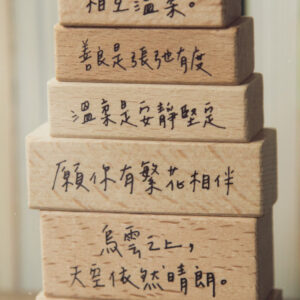 相互溫柔。
善良是張弛有度
溫柔是安靜堅定
願你有繁花相伴
烏雲之上,
天空依然晴朗。